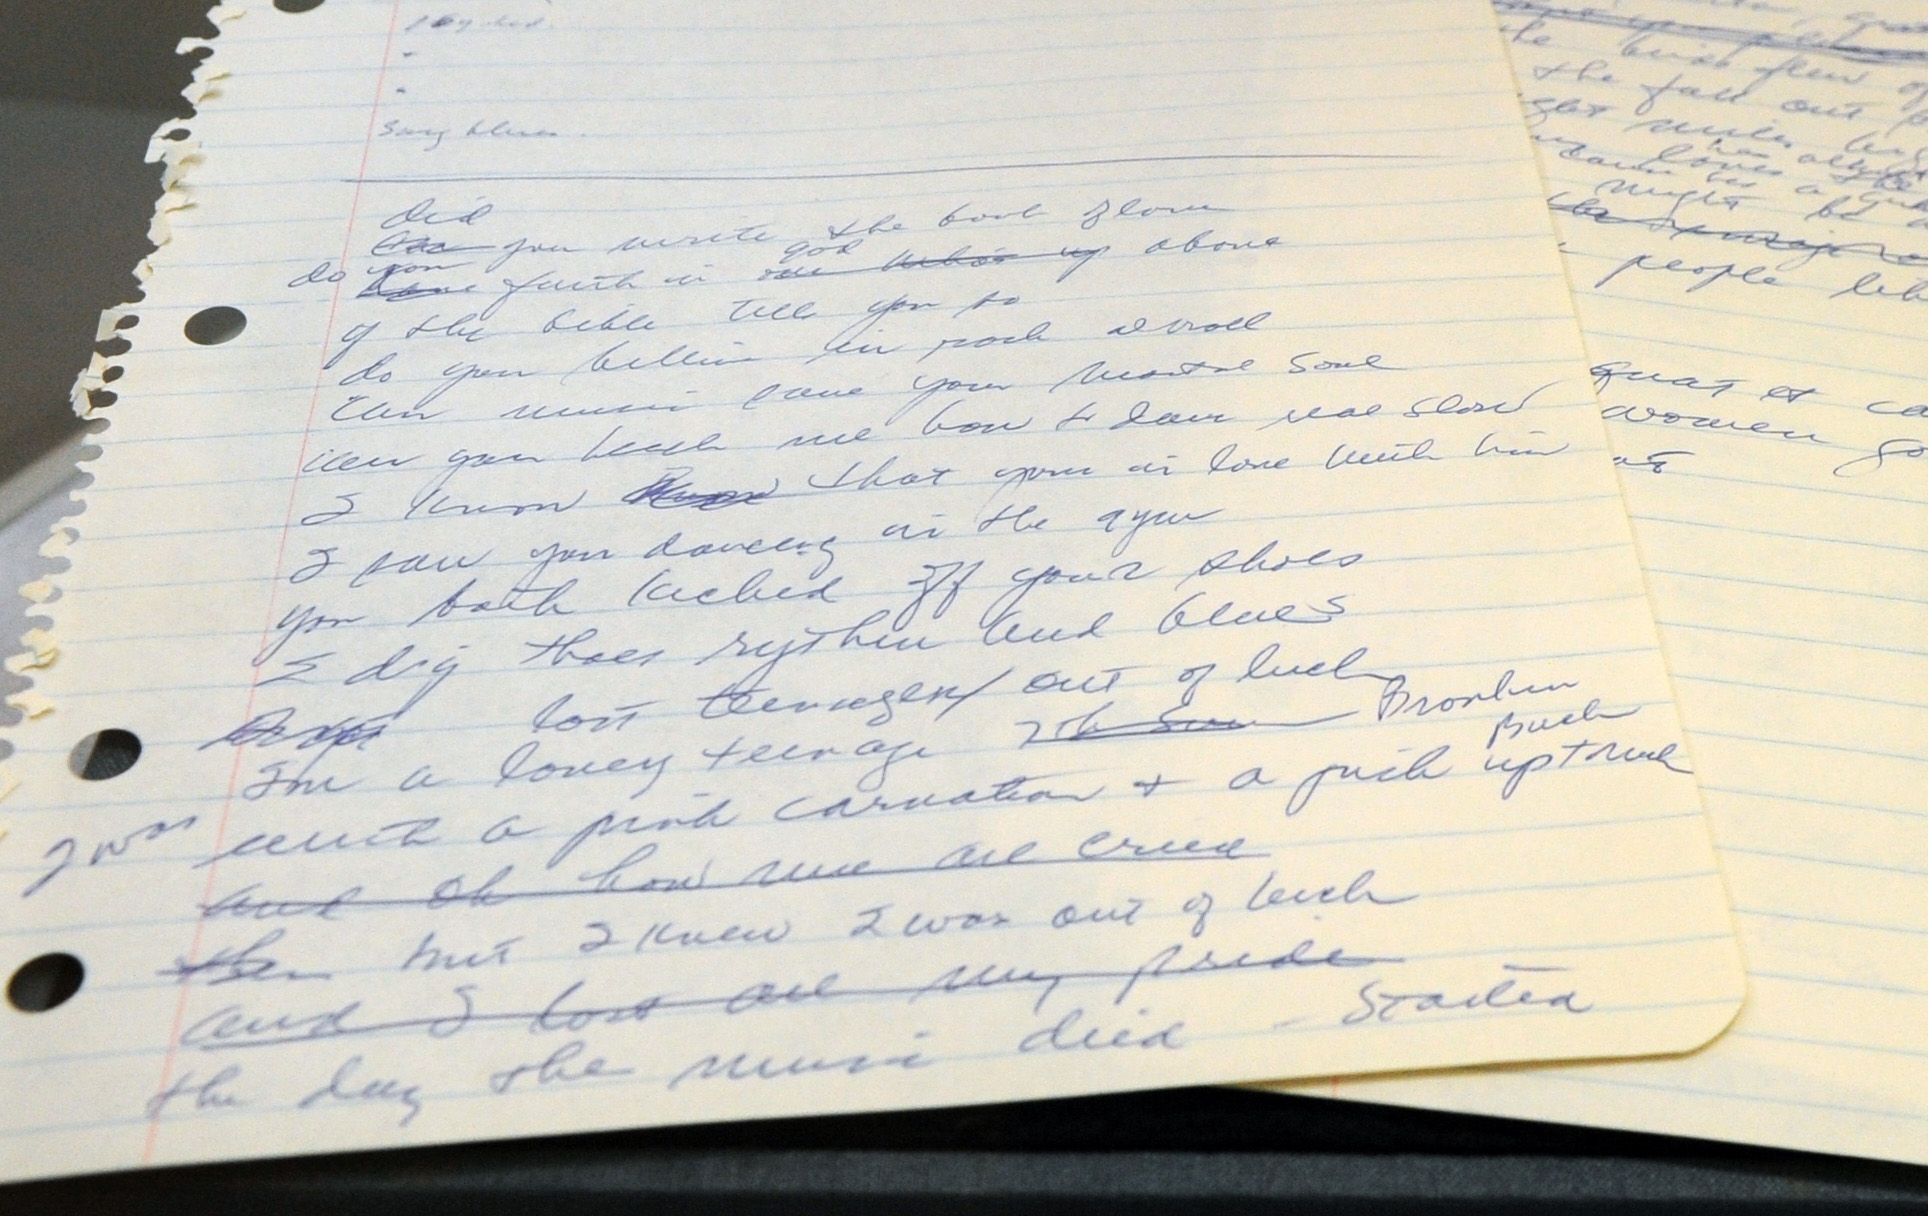 sung blues
Did
you write the book of love
do you have faith in god above
if the bible tell you so
do you believe in rock and roll
Can music save your mortal soul
can you teach me how to dance real slow
I know that your in love with him
I saw you dancing in the gym
you both kicked off your shoes
I dig thoes rythm and blues
lost teenager / out of luck
Im a loney teenage Bronkin
Buck
I was with a pink carnation + a pick up truck
and oh how we all cried
then but I knew I was out of luck
and I lost all my pride
the day the music died - Started
the birds flew
the fall out
miles
might be
people
great
women